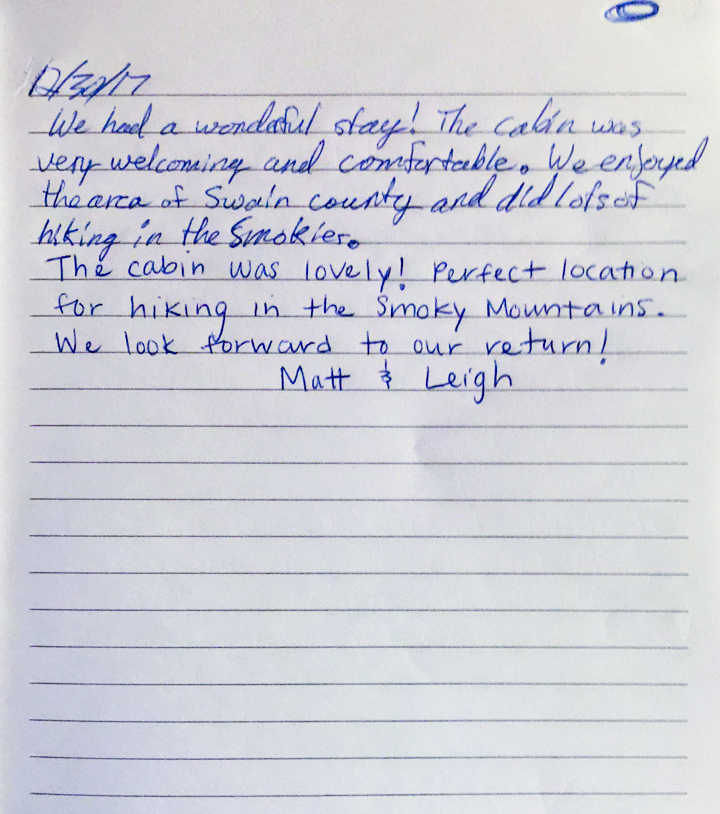 12/30/17
We had a wonderful stay! The cabin was
very welcoming and comfortable. We enjoyed
the area of Swain county and did lots of
hiking in the Smokies.
The cabin was lovely! Perfect location
for hiking in the Smoky Mountains.
We look forward to our return!
Matt & Leigh